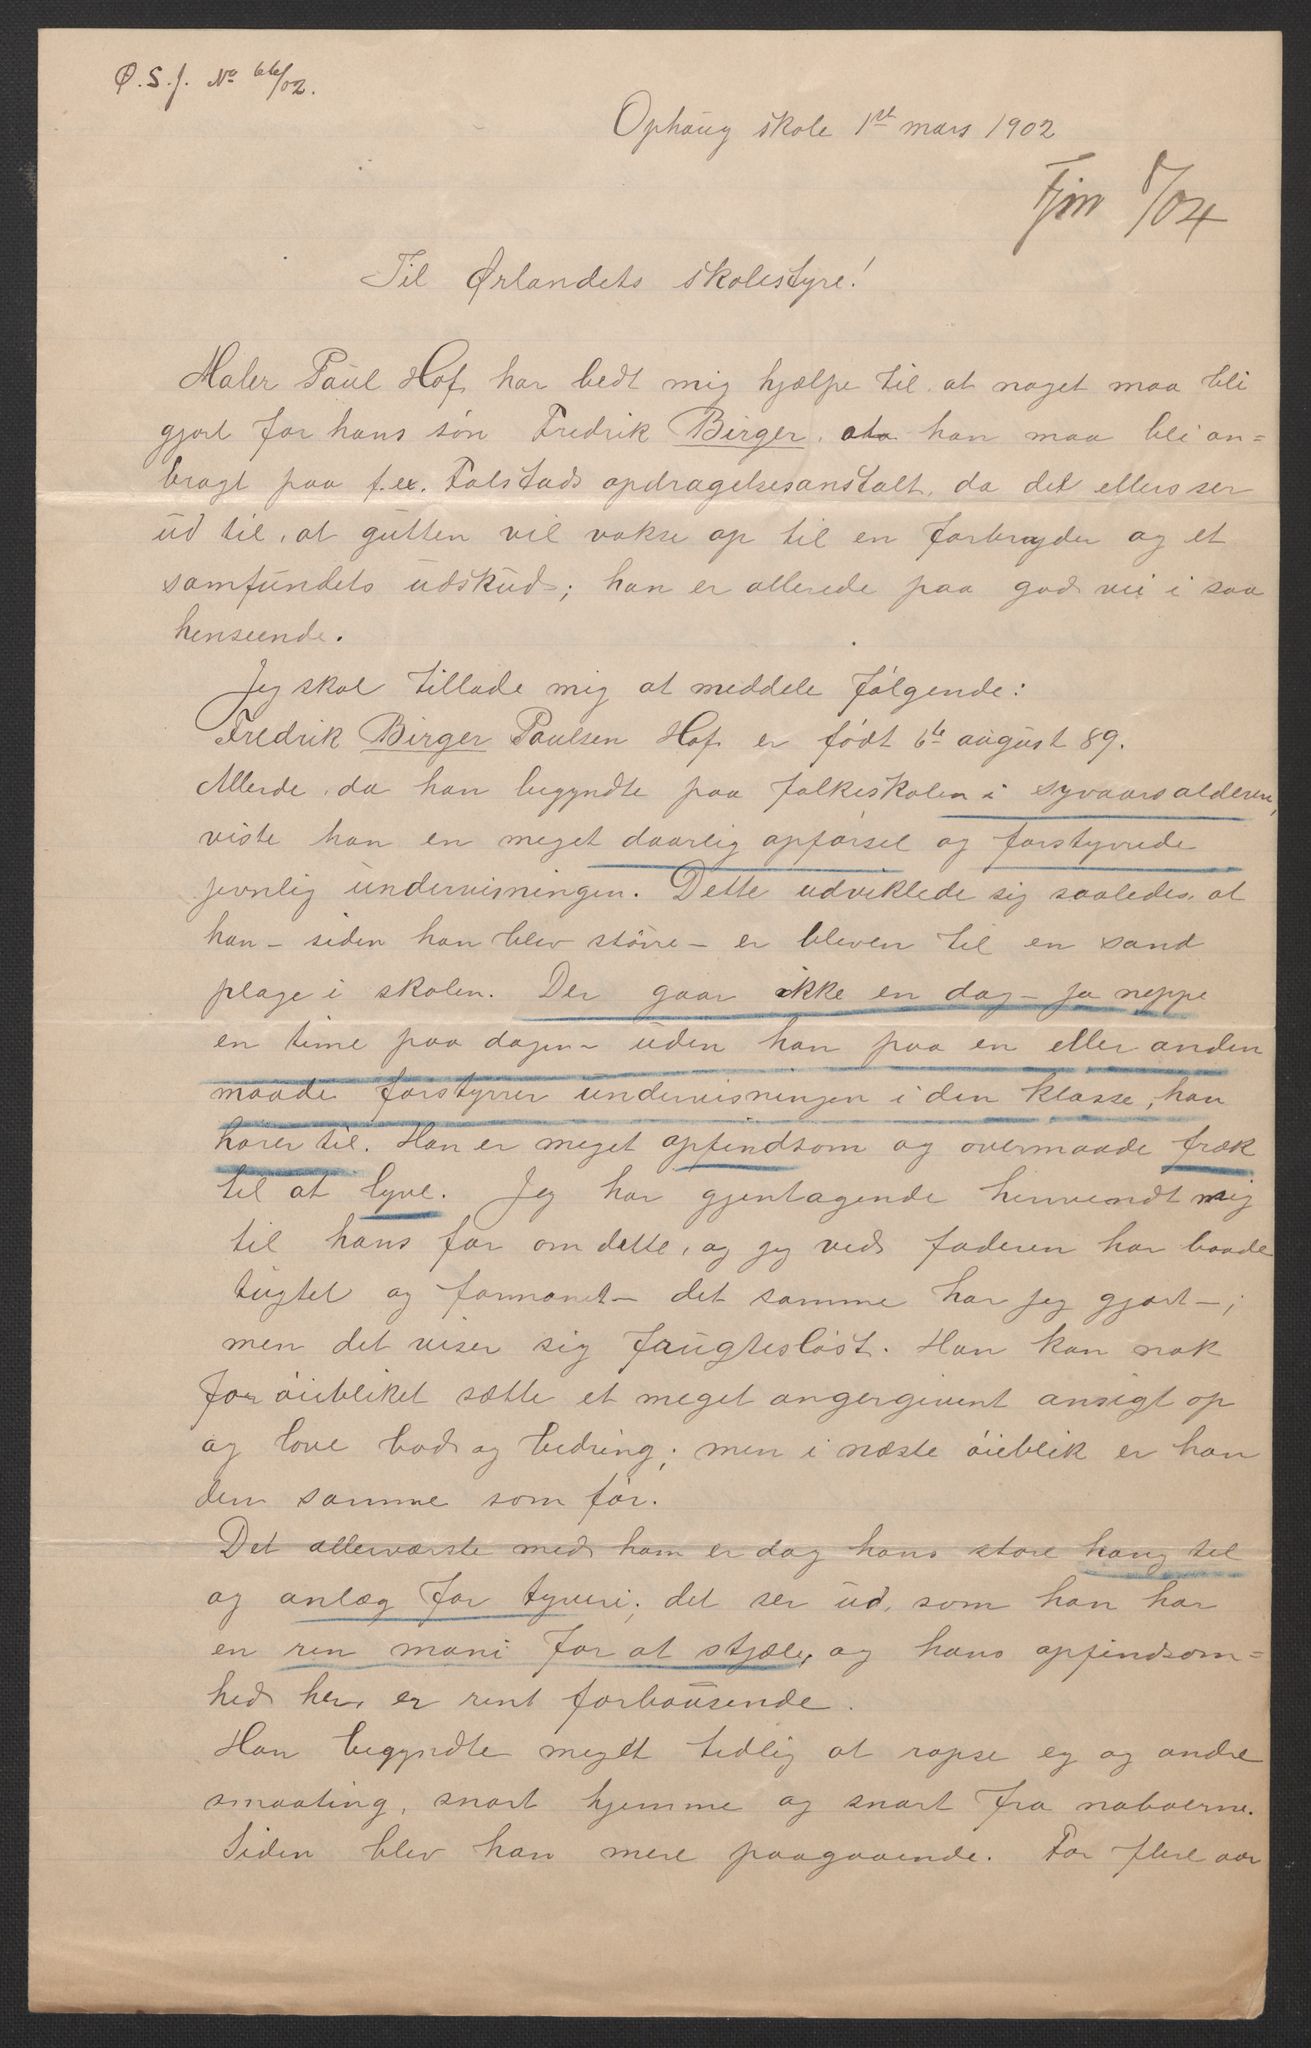 Ø.S.j. No 66/02.
Ophaug skole 1ste mars 1902
Fjm 8/04
Til Ørlandets skolestyre!
Maler Paul Hof har bedt mig hjælpe til, at noget maa bli
gjort for hans søn Fredrik Birger, at han maa bli an=
bragt paa f.ex. Falstads opdragelsesanstalt, da det ellers ser
ud til, at gutten vil vokse op til en forbryder og et
samfundets udskud; han er allerede paa god vei i saa
henseende.
Jeg skal tillade mig at meddele følgende:
Fredrik Birger Paulsen Hof er født 6te august 89.
Allerde, da han begyndte paa folkeskolen i syvaarsalderen,
viste han en meget daarlig opførsel og forstyrrede
jevnlig undervisningen. Dette udviklede sig saaledes, at
han – siden han blev større – er bleven til en sand
plage i skolen. Der gaar ikke en dag – ja neppe
en time paa dagen – uden han paa en eller anden
maade forstyrrer undervisningen i den klasse, han
hører til. Han er meget opfindsom og overmaade fræk
til at lyve. Jeg har gjentagende henvendt mig
til hans far om dette, og jeg ved faderen har baade
tugtet og formanet – det samme har jeg gjort –;
men det viser sig frugtesløst. Han kan nok
for øieblikket sætte et meget angergivent ansigt op
og love bod og bedring; men i næste øieblik er han
den samme som før.
Det allerværste med ham er dog hans store hang til
og anlæg for tyveri; det ser ud, som han har
en ren mani for at stjæle, og hans opfindsom=
hed her, er rent forbausende.
Han begyndte meget tidlig at rapse eg og andre
smaating, snart hjemme og snart fra naboerne.
Siden blev han mere paagaaende. For flere aar